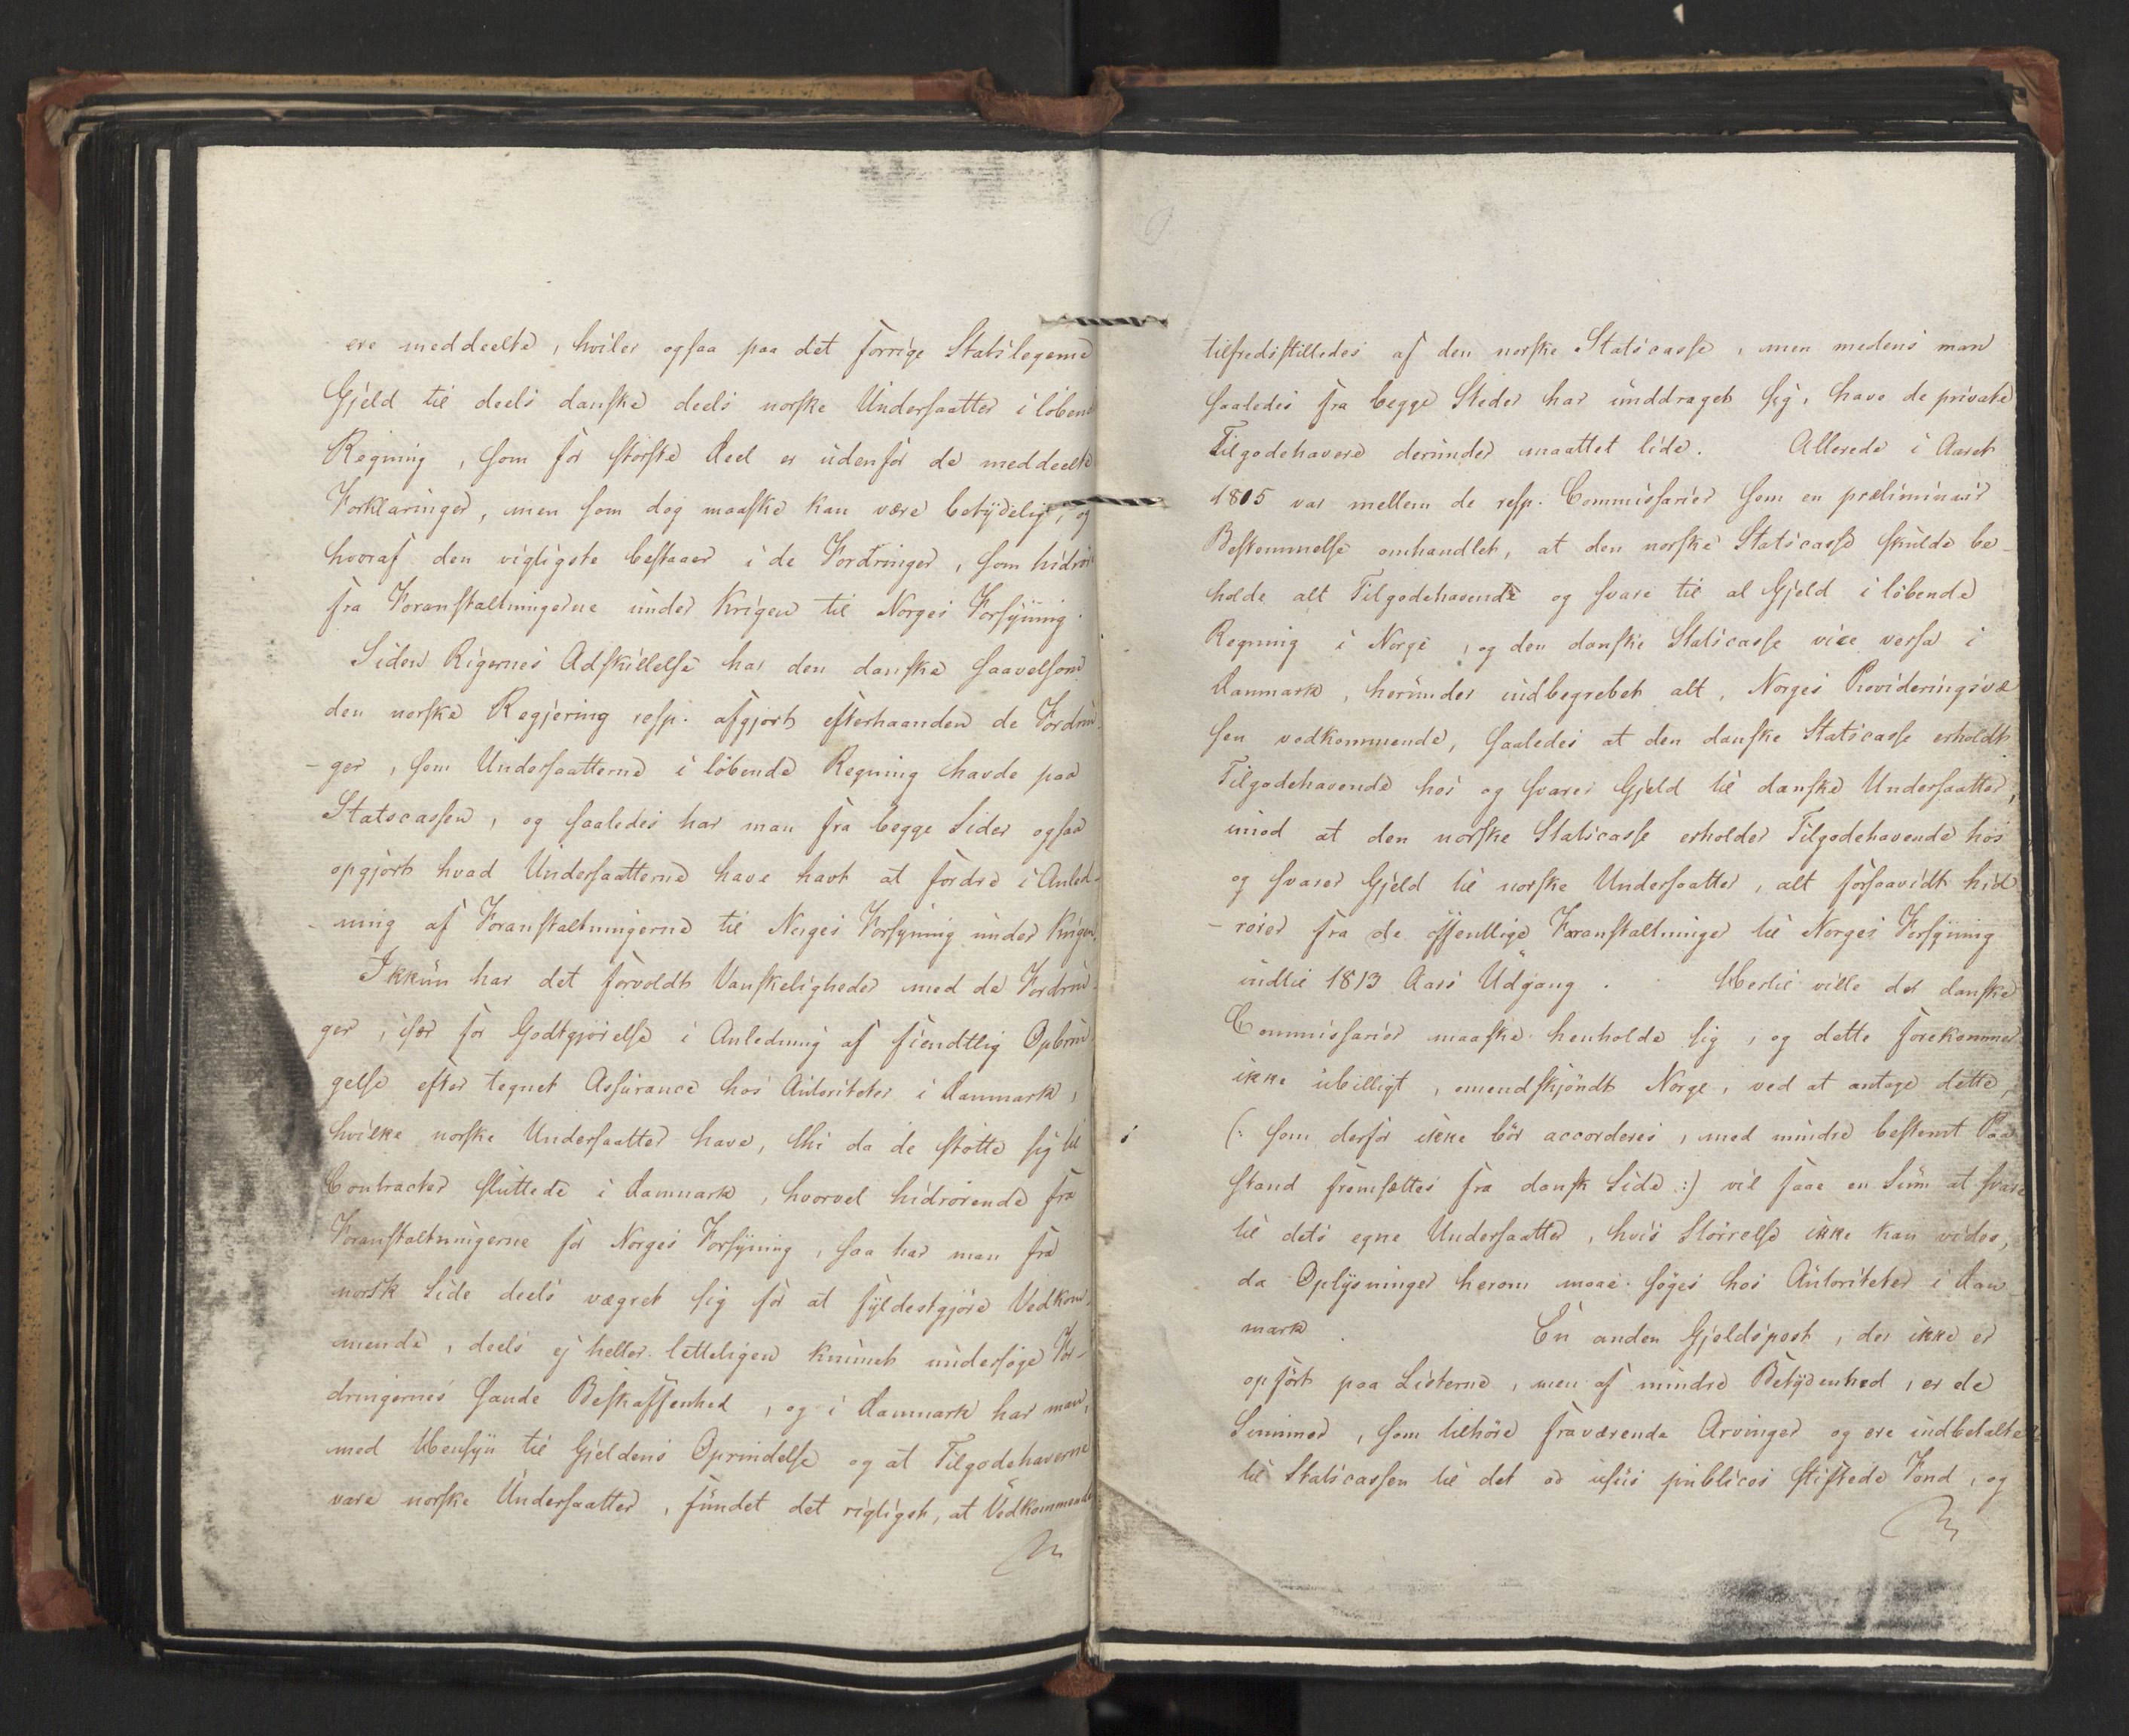 ere meddeelte, hviler ogsaa paa det forrige Statslegeme
Gjeld til deels danske deels norske Undersaatter i löbend
Regning, som for störste Deel er udenfor de meddeelte
Forklaringer, men som dog maaske kan være betydelig, og
hvoraf den vigtigste bestaaer i de Fordringer, som hidrör
fra Foranstaltningerne under Krigen til Norges Forsyning.
Siden Rigernes Adskillelse har den danske saavelsom
den norske Regjering resp. afgjort efterhaanden de Fordrin-
-ger, som Undersaatterne i löbende Regning havde paa
Statscassen, og saaledes har man fra begge Sider ogsaa
opgjort hvad Undersaatterne have havt at fordre i Anled-
-ning af Foranstaltningerne til Norges Forsyning under Krigen.
Ikkun har det forvoldt Vanskeligheder med de Fordrin-
ger, især for Godtgjörelse i Anledning af fiendtlig Opbrin-
gelse efter tegnet Assurance hos Autoriteter i Danmark,
hvilke norske Undersaatter have, thi da de støtte sig til
Contracter sluttede i Danmark, hvorvel hidrörende fra
Foranstaltningerne for Norges Forsyning, saa har man fra
norsk Side deels vægret sig for at fyldestgjöre Vedkom-
mende, deels ej heller letteligen kunnet undersöge For-
dringernes sande Beskaffenhed, og i Danmark har man,
med Hensyn til Gjeldens Oprindelse og at Tilgodehaverne
vare norske Undersaatter, fundet det rigtigst, at Vedkommende
tilfredsstilledes af den norske Statscasse, men medens man
saaledes fra begge Steder har unddraget sig, have de private
Tilgodehavere derunder maattet lide. Allerede i Aaret
1815 var mellem de resp. Commissarier som en præliminair
Bestemmelse omhandlet, at den norske Statscasse skulde be-
holde alt Tilgodehavende og svare til al Gjeld i löbende
Regning i Norge, og den danske Statscasse vice versa i
Danmark, herunder indbegrebet alt, Norges Provideringsvæ
sen vedkommende, saaledes at den danske Statscasse erholdt
Tilgodehavende hos og svarer Gjeld til danske Undersaatter,
imod at den norske Statscasse erholder Tilgodehavende hos
og svarer Gjeld til norske Undersaatter, alt forsaavidt hid
-rörer fra de offentlige Foranstaltninger til Norges Forsyning
indtil 1813 Aars Udgang. Hertil ville de danske
Commissarier maaske henholde sig, og dette forekommer
ikke ubilligt, omendskjöndt Norge, ved at antage dette,
(: som derfor ikke bör accorderes, med mindre bestemt Paa
stand fremsættes fra dansk Side :) vil faae en Sum at svare
til dets egne Undersaatter, hvis Störrelse ikke kan vides,
da Oplysninger herom maae söges hos Autoriteter i Dan
mark. En anden Gjeldspost, der ikke er
opfört paa Listerne, men af mindre Betydenhed, er de
Summer, som tilhöre fraværende Arvinger og ere indbetalte
til Statscassen til det ad usus publicos stiftede Fond, og